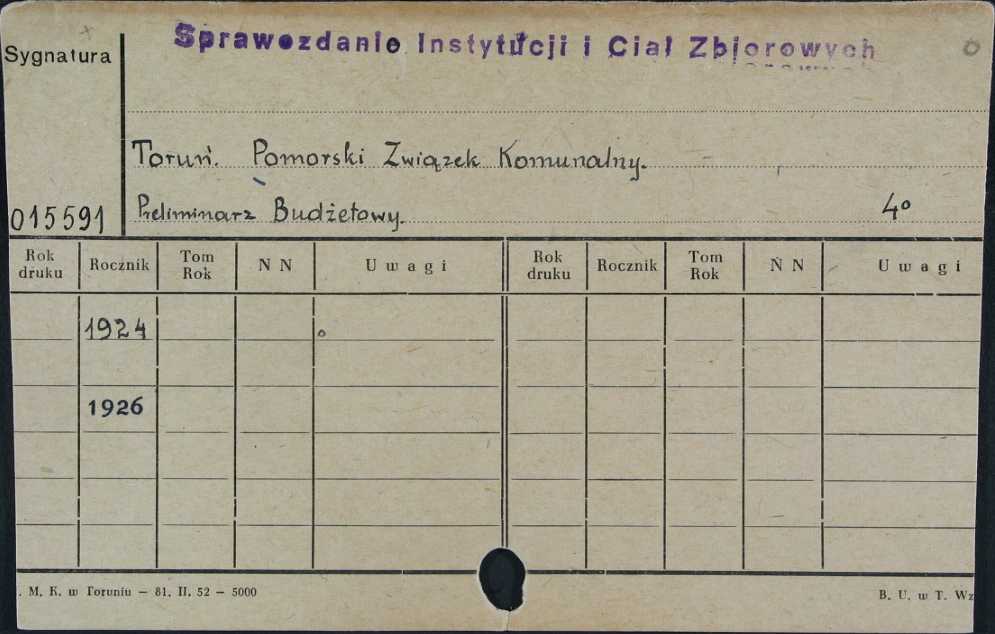 Sprawozdanie Instytucji i Ciał Zbiorowych
Sygnatura
Toruń. Pomorski Związek Komunalny.
015591 Preliminarz Budżetowy. 4o
Rok druku Rocznik Tom Rok N N Uwagi Rok druku Rocznik Tom Rok N N Uwagi
1924 o
1926
. M. K. w Toruniu — 81. II. 52 — 5000 B. U. w T. Wz